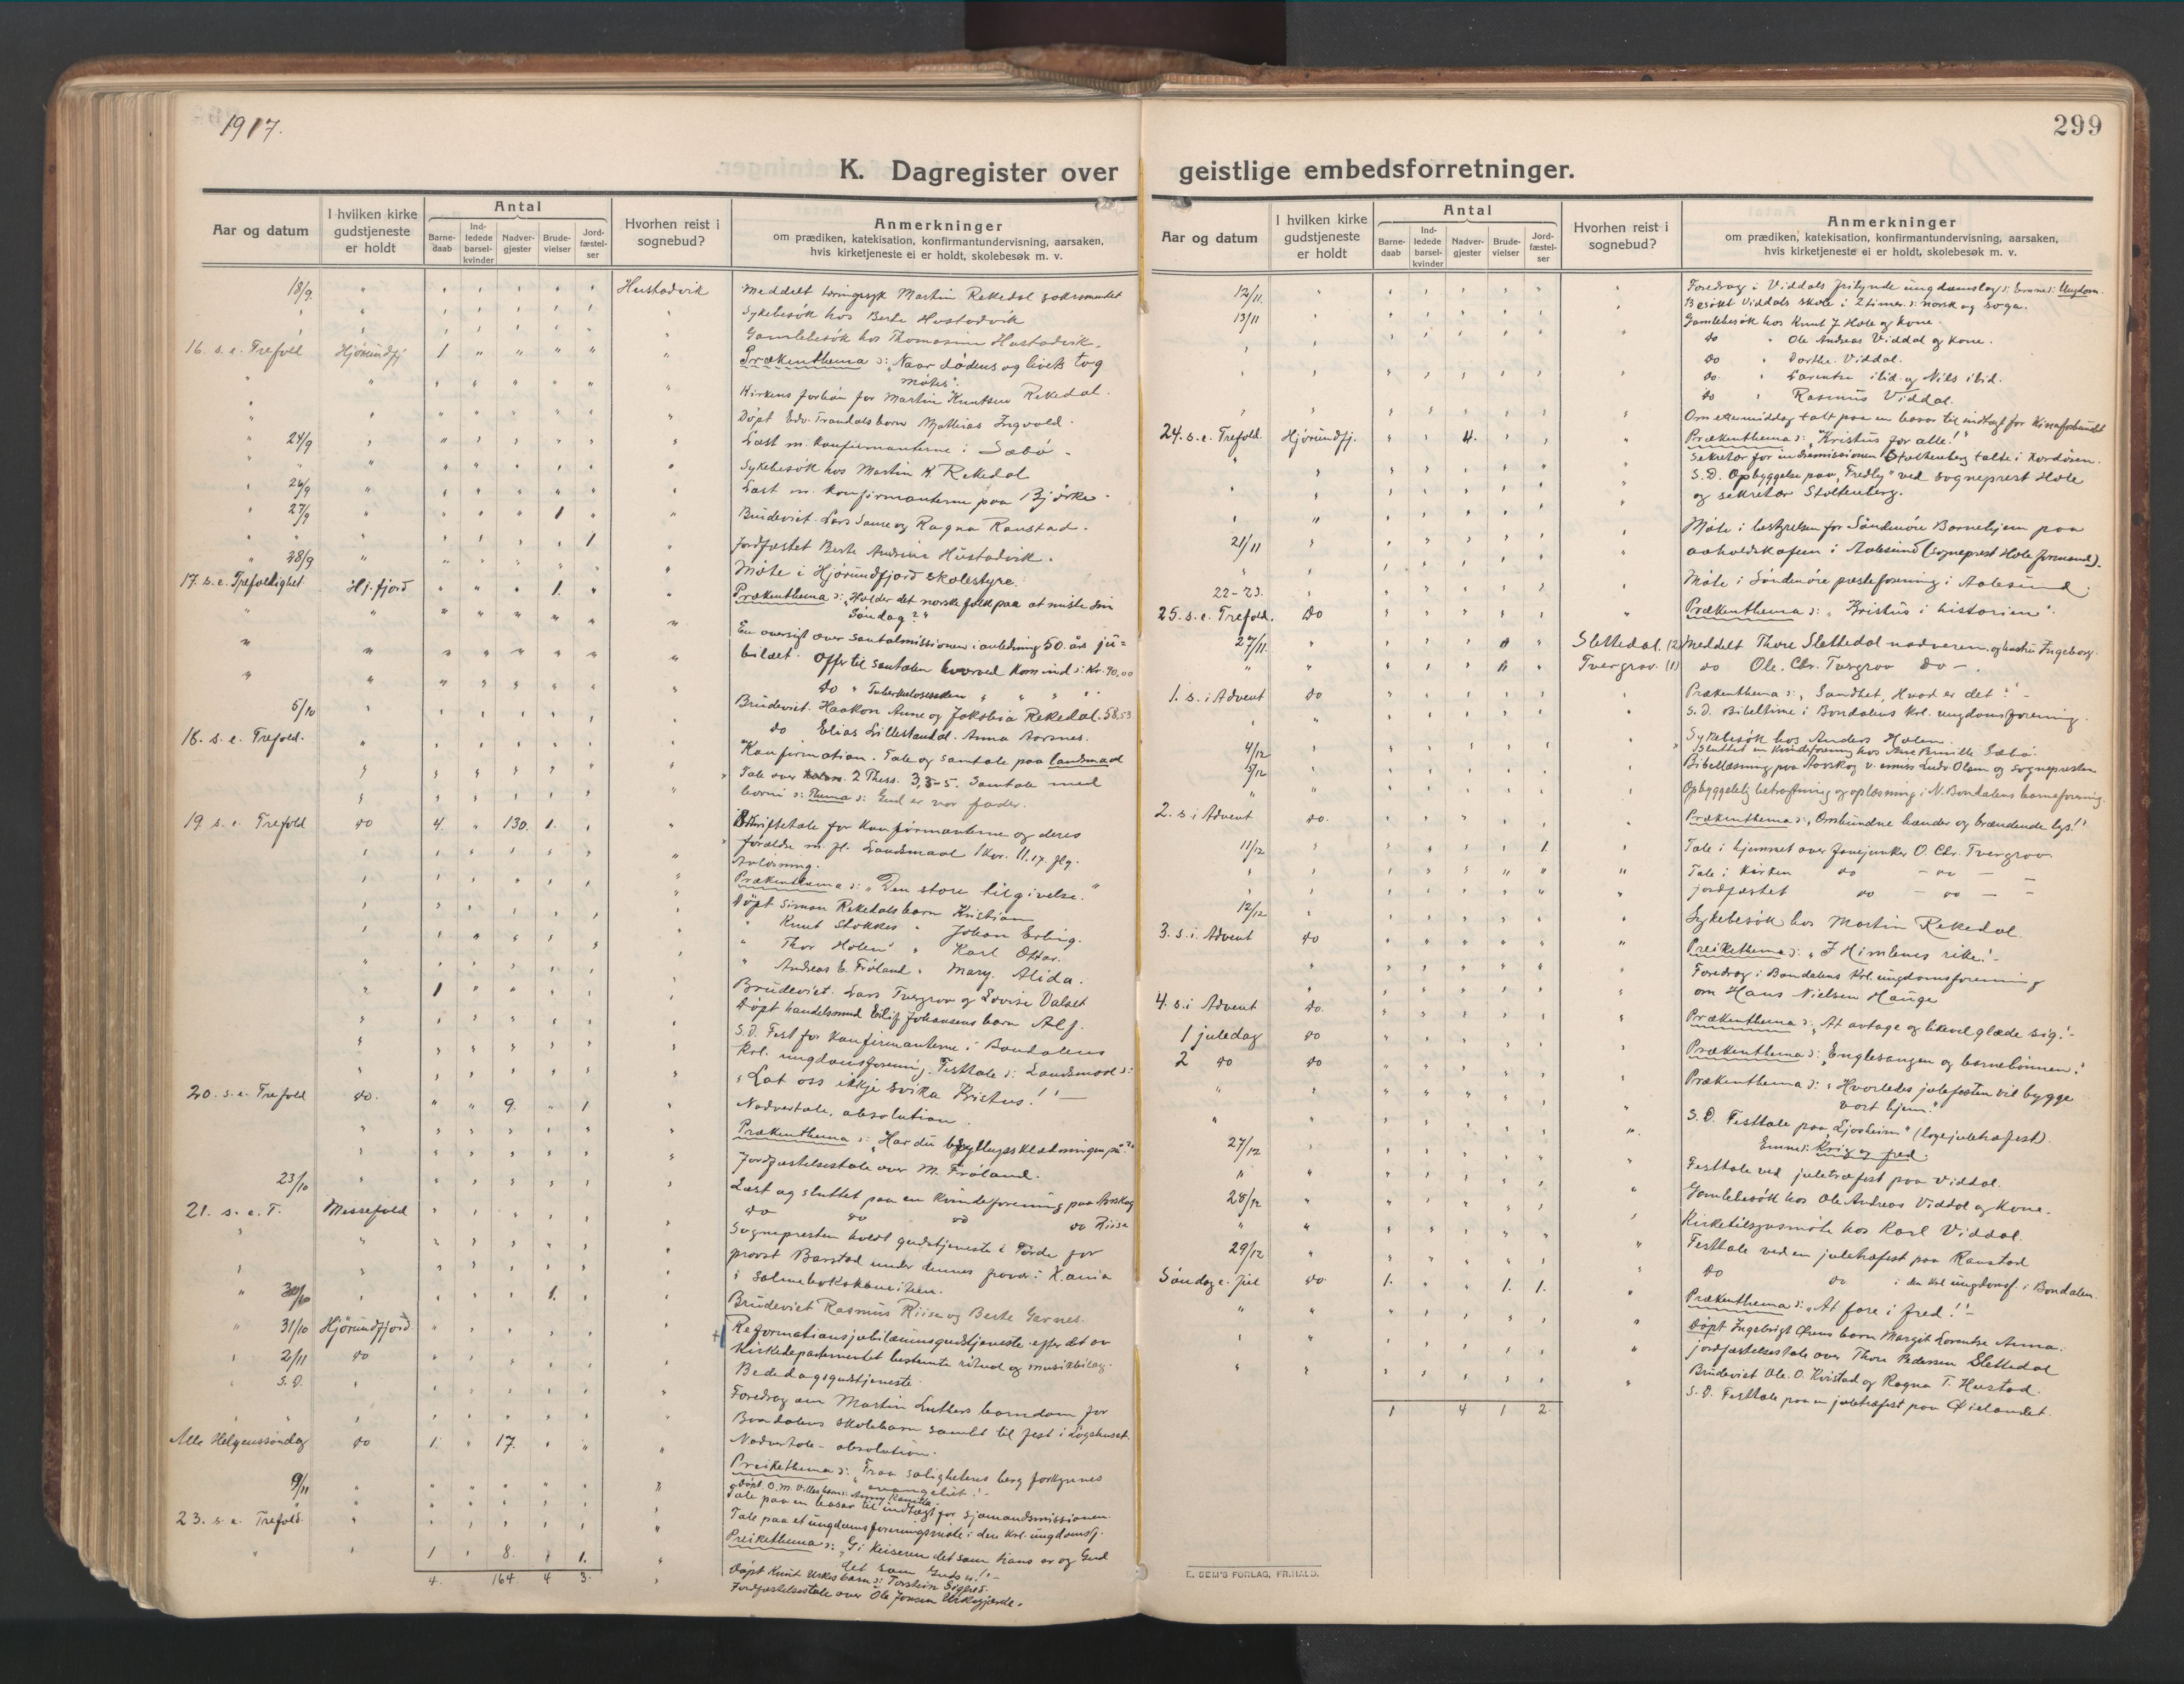 1917.
299
K. Dagregister over geistlige embedsforretninger.
Aar og datum
I hvilken kirke gudstjeneste er holdt
Antal
Barne-daab
Ind-ledede barsel-kvinder
Nadver-gjester
Brude-vielser
Jord-fæstel-ser
Hvorhen reist i sognebud?
Anmerkninger
om prædiken, katekisation, konfirmantundervisning, aarsaken,
hvis kirketjeneste ei er holdt, skolebesøk m. v.
18/9. Hustadvik Meddelt Martin Rekedal
Sykebesök hos Berte Hustadvik
Gamlebesök hos Thomasine Hustadvik.
16. s. e. Trefold Hjörundfj. 1 Prækenthema ɔ: "Naar dödens og livets tog
mötes".
Kirkens forbön for Martin Knutsen Rekedal.
Döpt Edv. Trandals barn Mathias Ingvald.
24/9 Læst m. konfirmanterne i Sæbö.
Sykebesök hos Martin K Rekedal
26/9 Læst m. konfirmanterne paa Bjørke.
27/9 1 Brudeviet Lars Saure og Ragna Ranstad.
1 Jordfæstet Berte Andrine Hustadvik.
28/9 Möte i Hjörundfjord skolestyre.
17. s. e. Trefoldighet. Hj.fjord 1. Prækenthema ɔ: "Holder det norske folk paa at miste sin
Söndag?"
En oversigt over santalmissionen i anledning 50 års ju=
bilæet. Offer til santalen hvorved kom ind ɔ: Kr. 90,00
do " Tuberkulosesaken " " " "
5/10 Brudeviet. Haakon Aune og Jakobia Rekedal. 58,53
do Elias Lillestandal. Anna Aarsnes.
18. s. e. Trefold. Konfirmation. Tale og samtale paa landsmaal
Tale over 2 Thess. 3,3-5. Samtale med
borni ɔ: Thema ɔ: Gud er vor fader.
19. s. e. Trefold do 4. 130. 1. Skriftetale for konfirmanterne og deres
forældre m. fl. Landsmaal 1 Kor. 11.17. flg.
Avlösning.
Prækenthema ɔ: "Den store tilgivelse."
Döpt Simon Rekedals barn Kristian
" Knut Stokkes " Johan Erling.
" Thor Holen " Karl Ottar.
" Andreas E. Fröland " Mary. Alida.
Brudeviet. Lars Tvergrov og Lovise Valset
1 Döpt handelsmand Eilif Johansens barn Alf.
S. D. Fest for konfirmanterne i Bondalens
krl. ungdomsforening. Festtale ɔ: Landsmaal ɔ:
"Lat oss ikkje svika Kristus!"
20. s. e. Trefold do. 9. 1 Nadvertale, absolution.
Prækenthema ɔ: "Har du bryllupsklædningen på?"
Jordfæstelsestale over M. Fröland.
23/10 Læst og sluttet paa en kvindeforening paa Aarskog
do do do do Riise
21. s. e. T. Messefald Sognepresten holdt gudstjeneste i Förde for
provst Barstad under dennes fravær i K.ania
i salmebokskomiteen.
30/10 1. Brudeviet Rasmus Riise og Berte Garnes.
31/10 Hjörundfjord. Reformationsjubilæumsgudstjeneste efter det av
Kirkedepartementet bestemte ritual og musikbilag.
2/11 do Bededagsgudstjeneste.
S. D. Foredrag om Martin Luthers barndom for
Bondalens skolebarn samlet til fest i Logehuset.
Alle Helgenssöndag do 1. 17. Nadvertale - absolution.
Preikethema ɔ: "Fraa salighetens berg forkynnes
evangeliet!"
Döpt O. M. Villes barn ɔ: Anny Kamilla.
9/11 Tale paa en basar til indtægt for sjömandsmissionen.
Tale paa et ungdomsforeningsmöte i den krl. ungdomsf.
23. s. e. Trefold. Preikethema ɔ: "Gi keiseren det som hans er og Gud
det som Guds er!"
1 8. 1. Döpt Knut Urkes barn ɔ: Torstein Sigfred.
Jordfæstelsestale over Ole Jonsen Urkegjærde.
4. 164 4 3.
Aar og datum
I hvilken kirke gudstjeneste er holdt
Antal
Barne-daab
Ind-ledede barsel-kvinder
Nadver-gjester
Brude-vielser
Jord-fæstel-ser
Hvorhen reist i sognebud?
Anmerkninger
om prædiken, katekisation, konfirmantundervisning, aarsaken,
hvis kirketjeneste ei er holdt, skolebesøk m. v.
12/11. Foredrag i Viddals frilynde ungdomslag ɔ: Emne ɔ: Ungdom.
13/11 Besökt Viddals skole i 2 timer ɔ: norsk og soga.
Gamlebesök hos Knut J Hole og kone.
do " Ole Andreas Viddal og kone.
do " Dorthe. Viddal.
do " Larentse ibid. og Nils ibid.
do " Rasmus Viddal.
Om ettermiddag talt paa en basar til indtægt for Kinaforbundet
24. s. e. Trefold. Hjörundfj. 4. Prækenthema ɔ: "Kristus for alle!"
Sekretær for indremissionen Stoltenberg talte i kordören.
S. D. Opbyggelse paa "Fredly" ved sogneprest Hole
og sekretær Stoltenberg.
21/11 Möte i bestyrelsen for Söndmöre Barnehjem paa
avholdskafeen i Aalesund (sogneprest Hole formand).
22-23. Möte i Söndmöre presteforening i Aalesund.
25. s. e. Trefold. do Prækenthema ɔ: "Kristus i historien".
27/11. Slettedal. (2) Meddelt Thore Slettedal nadveren og hustru Ingeborg.
Tvergrov. (1) do Ole. Chr. Tvergrov do.
1. s. i Advent do Prækenthema ɔ: "Sandhet, Hvad er det?"
S. D. Bibeltime i Bondalens krl. ungdomsforening.
Sykebesök hos Anders Holen.
4/12 Sluttet en kvindeforening hos Ane Pernille Sæbö.
5/12 Bibellæsning paa Aarskog v. emiss. Ludv. Olsen og sognepresten
Opbyggelig betraktning og oplæsning i N. Bondalens barneforening.
2. s. i Advent do. Prækenthema ɔ: "Ombundne lænder og brændende lys!"
11/12 1. Tale i hjemmet over fanejunker O. Chr. Tvergrov.
Tale i kirken do - do -
jordfæstet do - do -
12/12 Sykebesök hos Martin Rekedal.
3. s. i. Advent do Preikethema ɔ: "I Himlenes rike!"
Foredrag i Bondalens krl. ungdomsforening
om Hans Nielsen Hauge
4. s. i Advent do. Prækenthema ɔ: "At avtage og likevel glæde sig!"
1 juledag do Prækenthema ɔ: "Englesangen og barnebönnen."
2 do do Prækenthema ɔ: "Hvorledes julefesten vil bygge
vort hjem."
S. D. Festtale paa "Ljosheim" (Logejuletræfest).
Emne ɔ: Krig og fred.
27/12 Festtale ved juletræfest paa Viddal.
Gamlebesök hos Ole Andreas Viddal og kone.
28/12 Kirketilsynsmöte hos Karl Viddal.
Festtale ved en juletræfest paa Ranstad
29/12 do do i den krl ungdomsf. i Bondalen.
Söndag e. Jul do 1. 1. 1. Prækenthema ɔ: "At fare i fred!"
Döpt Ingebrigt Örens barn Margit Lorentse Anna.
jordfæstelsestale over Thore Pedersen Slettedal
Brudeviet Ole. O. Kvistad og Ragna T. Hustad.
S. D. Festtale paa en juletræfest paa Öielandet.
1 4 1 2
E. SEM'S FORLAG, FR.HALD.